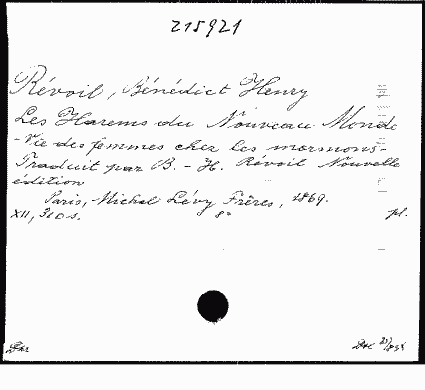 215921
Révoil, Bénédict Henry
Les Harems du Nouveau Monde
-Vie des femmes chez les mormons-
Traduit par B. - H. Révoil Nouvelle
édition
Paris, Michel Lévy Frères, 1869.
XII, 310 s. 8° pl.